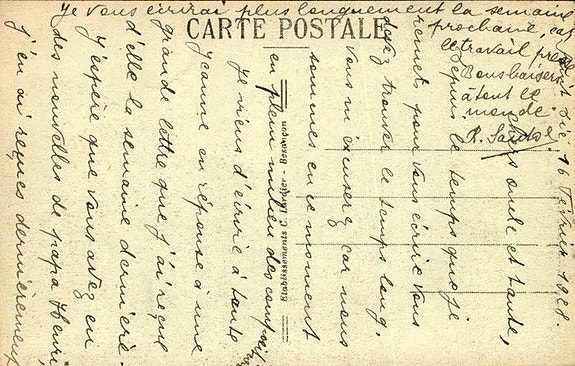 CARTE POSTALE
Etablissements C. Lardier - Besançon
16 Février 1928.
oncle et tante,
Depuis le temps que je
remets pour vous écrire vous
devez trouver le temps long,
Vous m'excuserez car nous
sommes en ce moment
en plein milieu des
Je viens d'écrire à tante
Jeanne en réponse a une
grande lettre que j'ai reçue
d'elle la semaine dernière.
J'espère que vous avez eu
des nouvelles de papa Henri
j'en ai reçues dernièrement
Je vous écrirai plus longuement la semaine
prochaine, car
le travail presse
Bons baisers
à tout le
monde.
R.